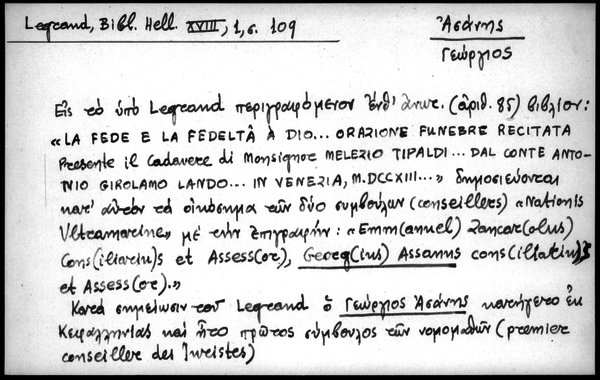 Legrand, Bibl. Hell. XVIII, 1, σ. 109
Ἀσάνης
Γεώργιος
Εἰς τὸ ὑπὸ Legrand περιγραφόμενον ἔνθ' ἀνωτ. (ἀριθ. 85) βιβλίον:
«LA FEDE E LA FEDELTÀ A DIO... ORAZIONE FUNEBRE RECITATA
Presente il Cadavere di Monsignor MELEZIO TIPALDI... DAL CONTE ANTO-
NIO GIROLAMO LANDO... IN VENEZIA, M.DCCXIII...» δημοσιεύονται
κατ' αὐτὸν τὰ οἰκόσημα τῶν δύο συμβούλων (conseillers) «Nationis
Vltramarine» μὲ τὴν ἐπιγραφήν: «Emm(anuel) Zancar(olus)
Cons(iliariu)s et Assess(or), Georg(ius) Assanns cons(iliariu)s
et Assess(or).»
Κατὰ σημείωσιν τοῦ Legrand ὁ Γεώργιος Ἀσάνης κατήγετο ἐκ
Κεφαλληνίας καὶ ἦτο πρῶτος σύμβουλος τῶν νομομαθῶν (premier
conseiller des Juristes)